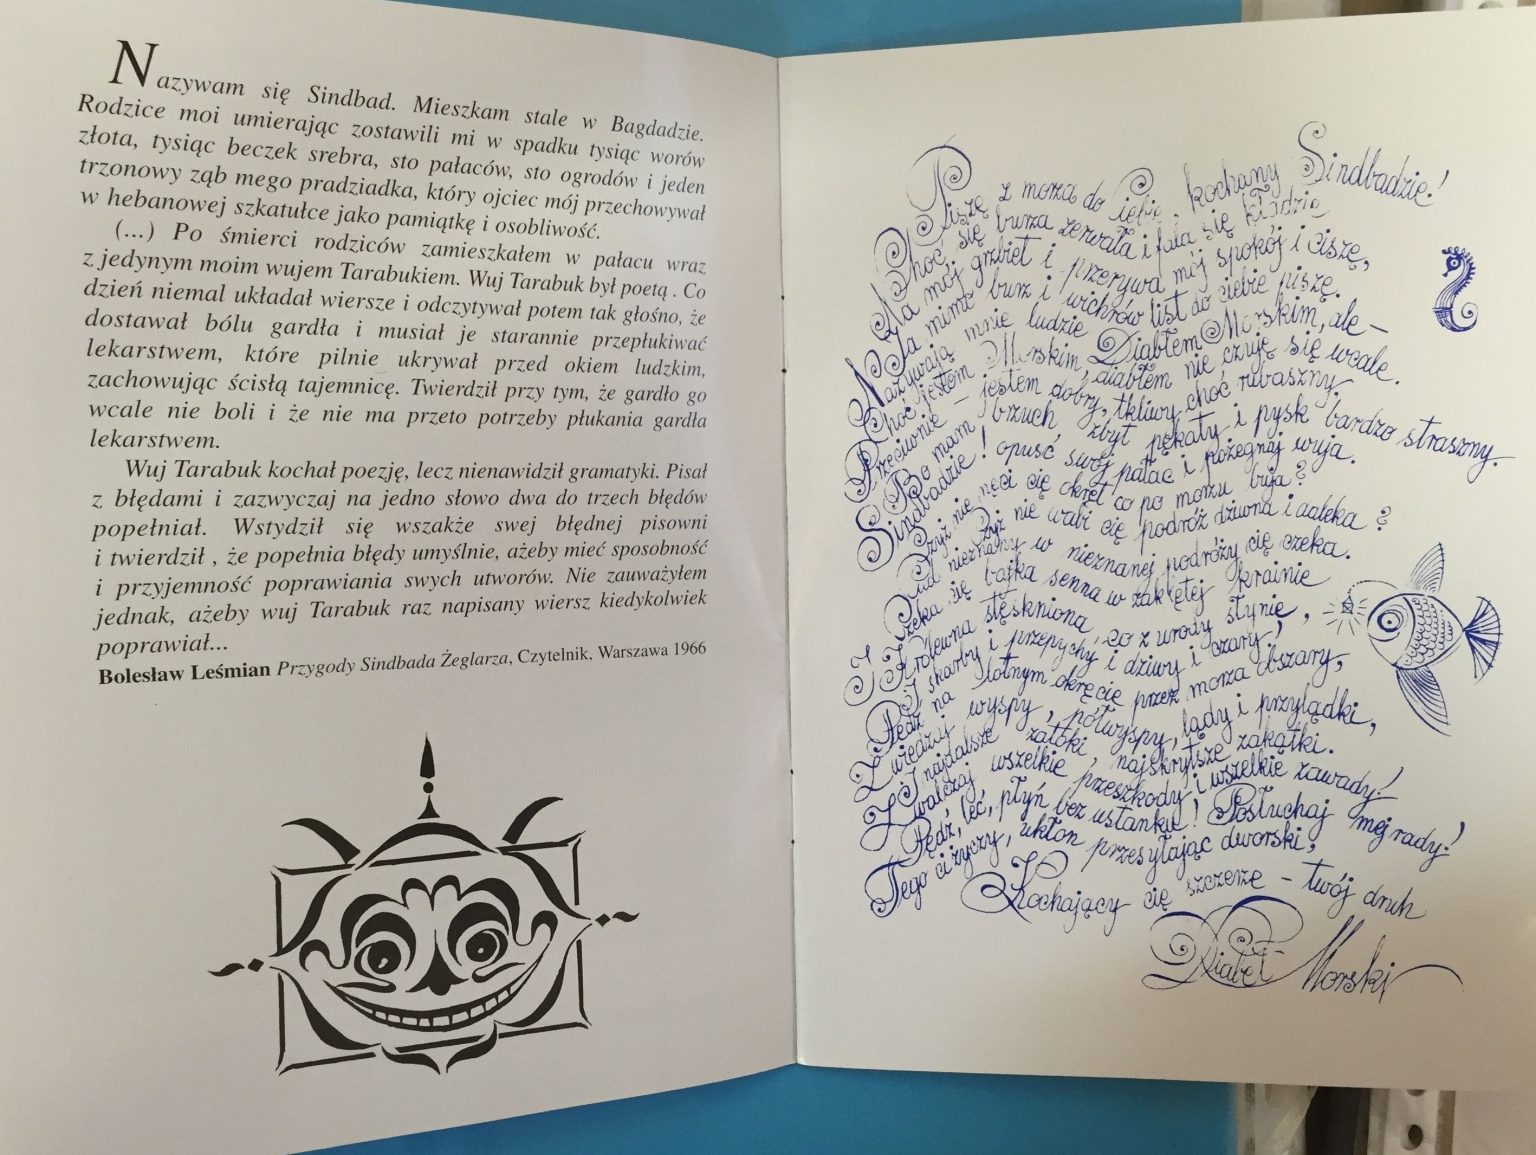 Nazywam się Sindbad. Mieszkam stale w Bagdadzie.
Rodzice moi umierając zostawili mi w spadku tysiąc worów
złota, tysiąc beczek srebra, sto pałaców, sto ogrodów i jeden
trzonowy ząb mego pradziadka, który ojciec mój przechowywał
w hebanowej szkatułce jako pamiątkę i osobliwość.
(...) Po śmierci rodziców zamieszkałem w pałacu wraz
z jedynym moim wujem Tarabukiem. Wuj Tarabuk był poetą . Co
dzień niemal układał wiersze i odczytywał potem tak głośno, że
dostawał bólu gardła i musiał je starannie przepłukiwać
lekarstwem, które pilnie ukrywał przed okiem ludzkim,
zachowując ścisłą tajemnicę. Twierdził przy tym, że gardło go
wcale nie boli i że nie ma przeto potrzeby płukania gardła
lekarstwem.
Wuj Tarabuk kochał poezję, lecz nienawidził gramatyki. Pisał
z błędami i zazwyczaj na jedno słowo dwa do trzech błędów
popełniał. Wstydził się wszakże swej błędnej pisowni
i twierdził , że popełnia błędy umyślnie, ażeby mieć sposobność
i przyjemność poprawiania swych utworów. Nie zauważyłem
jednak, ażeby wuj Tarabuk raz napisany wiersz kiedykolwiek
poprawiał...
Bolesław Leśmian Przygody Sindbada Żeglarza, Czytelnik, Warszawa 1966
Piszę z morza do Ciebie, kochany Sindbadzie!
Choć się burza zerwała i fala się kładzie
Na mój grzbiet i przerywa mój spokój i ciszę,
Ja mimo burz i wichrów list do ciebie piszę.
Nazywają mnie ludzie Diabłem Morskim, ale –
Choć jestem Morskim, diabłem nie czuję się wcale.
Przeciwnie – jestem dobry, tkliwy, choć rubaszny,
Bo mam brzuch zbyt pękaty i pysk bardzo straszny.
Sindbadzie! opuść swój pałac i pożegnaj wuja.
Czyż nie nęci cię okręt co po morzu buja?
Czyż nie wabi cię podróż dziwna i daleka?
Cud nieznany w nieznanej podróży cię czeka.
Czeka cię bajka senna w zaklętej krainie
I Królewna stęskniona, co z urody słynie,
I skarby i przepychy i dziwy i czary,
Pędź na lotnym okręcie przez morza obszary,
Zwiedzaj wyspy, półwyspy, lądy i przylądki,
I najdalsze zatoki, najskrytsze zakątki.
Zwalczaj wszelkie przeszkody i wszelkie zawady!
Pędź, leć, płyń bez ustanku! Posłuchaj mej rady!
Tego ci życzy, ukłon przesyłając dworski,
Kochający cię szczerze – twój druh
Diabeł Morski